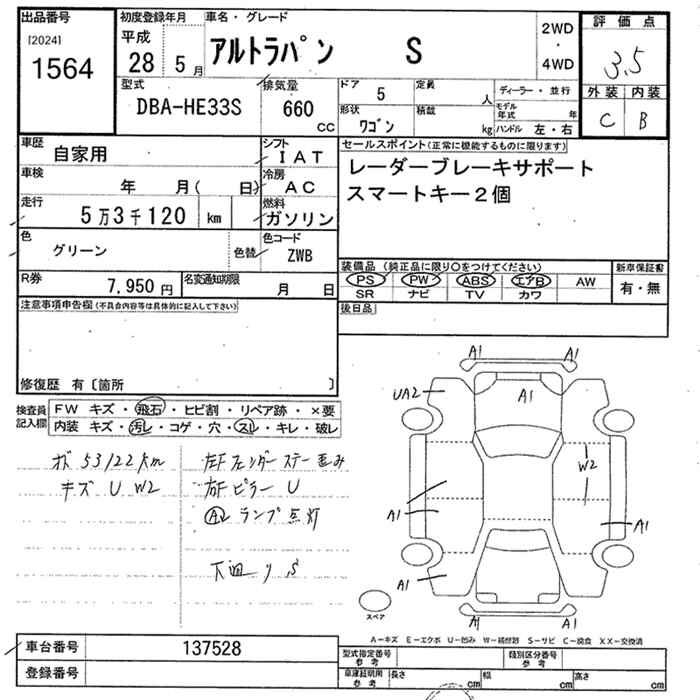 出品番号
[2024]
1564
初度登録年月
平成
28 5月
車名・グレード
アルトラパン S
2WD
・
4WD
評価点
3.5
外装 内装
C B
型式
DBA-HE33S
排気量
660
CC
ドア
5
形状
ワゴン
定員
人
積載
kg
ディーラー・並行
モデル年式 年
ハンドル 左・右
車歴
自家用
シフト
IAT
車検
年 月( 日)
冷房
AC
走行
5万3千120 km
燃料
ガソリン
色
グリーン
色替
色コード
ZWB
R券
7,950円
名変通知期限
月 日
セールスポイント(正常に機能するものに限ります)
レーダーブレーキサポート
スマートキー2個
装備品(純正品に限り○をつけてください)
PS PW ABS エアB AW
SR ナビ TV カワ
新車保証書
有・無
後日品
注意事項申告欄(不具合内容等は具体的に記入して下さい)
修復歴 有〔箇所 〕
検査員記入欄
FW キズ・飛石・ヒビ割・リペア跡・×要
内装 キズ・汚レ・コゲ・穴・スレ・キレ・破レ
53122km
キズ U W2
左Fフェンダーステー歪み
右Fピラー U
ランプ点灯
下廻り S
A1 A1
UA2
A1
W2
A1
A1
A1
A1 A1
スペア
A-キズ E-エクボ U-凹み W-補修跡 S-サビ C-腐食 XX-交換済
車台番号
137528
登録番号
型式指定番号
参考
類別区分番号
参考
車庫証明用
参考
長さ cm
幅 cm
高さ cm